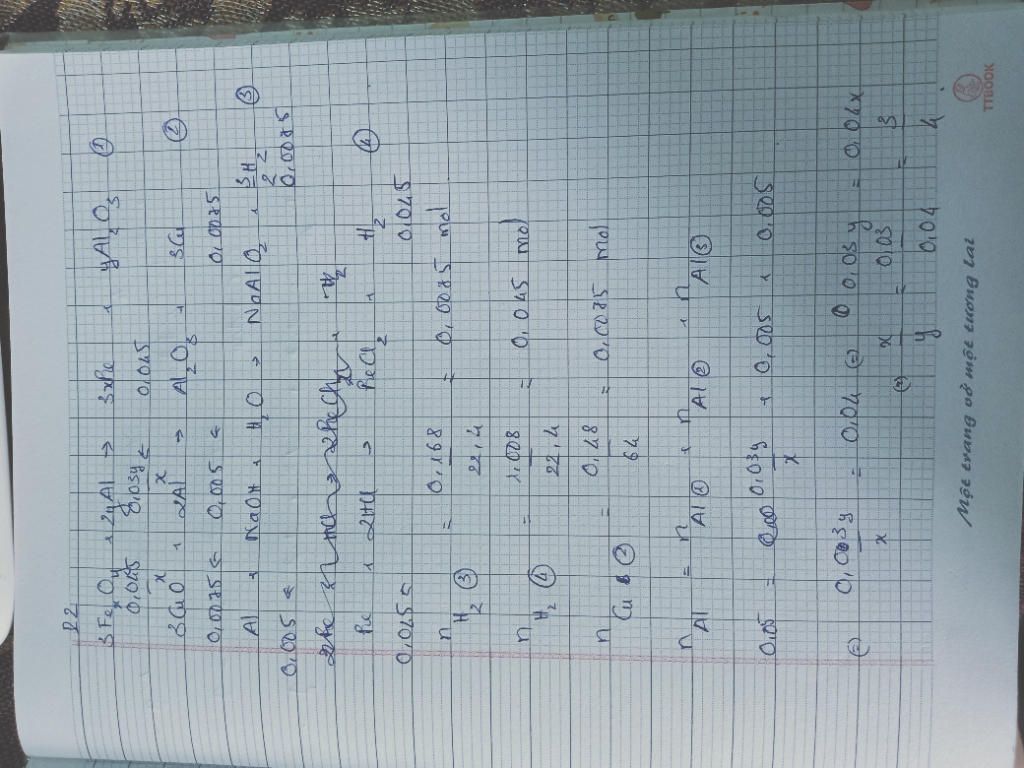 B2
3FexOy + 2yAl → 3xFe + yAl2O3 ①
0,045/x 0,03y/x ← 0,045
3CuO + 2Al → Al2O3 + 3Cu ②
0,0075 ← 0,005 ← 0,0075
Al + NaOH + H2O → NaAlO2 + 3/2 H2 ③
0,005 ← 0,0075
Fe + 2HCl → FeCl2 + H2 ④
0,045 ← 0,045
nH2 ③ = 0,168/22,4 = 0,0075 mol
nH2 ④ = 1,008/22,4 = 0,045 mol
nCu ② = 0,48/64 = 0,0075 mol
nAl = nAl① + nAl② + nAl③
0,05 = 0,03y/x + 0,005 + 0,005
(=) 0,03y/x = 0,04 (=) 0,03y = 0,04x
(=) x/y = 0,03/0,04 = 3/4
Một trang vở một tương lai
TTBOOK